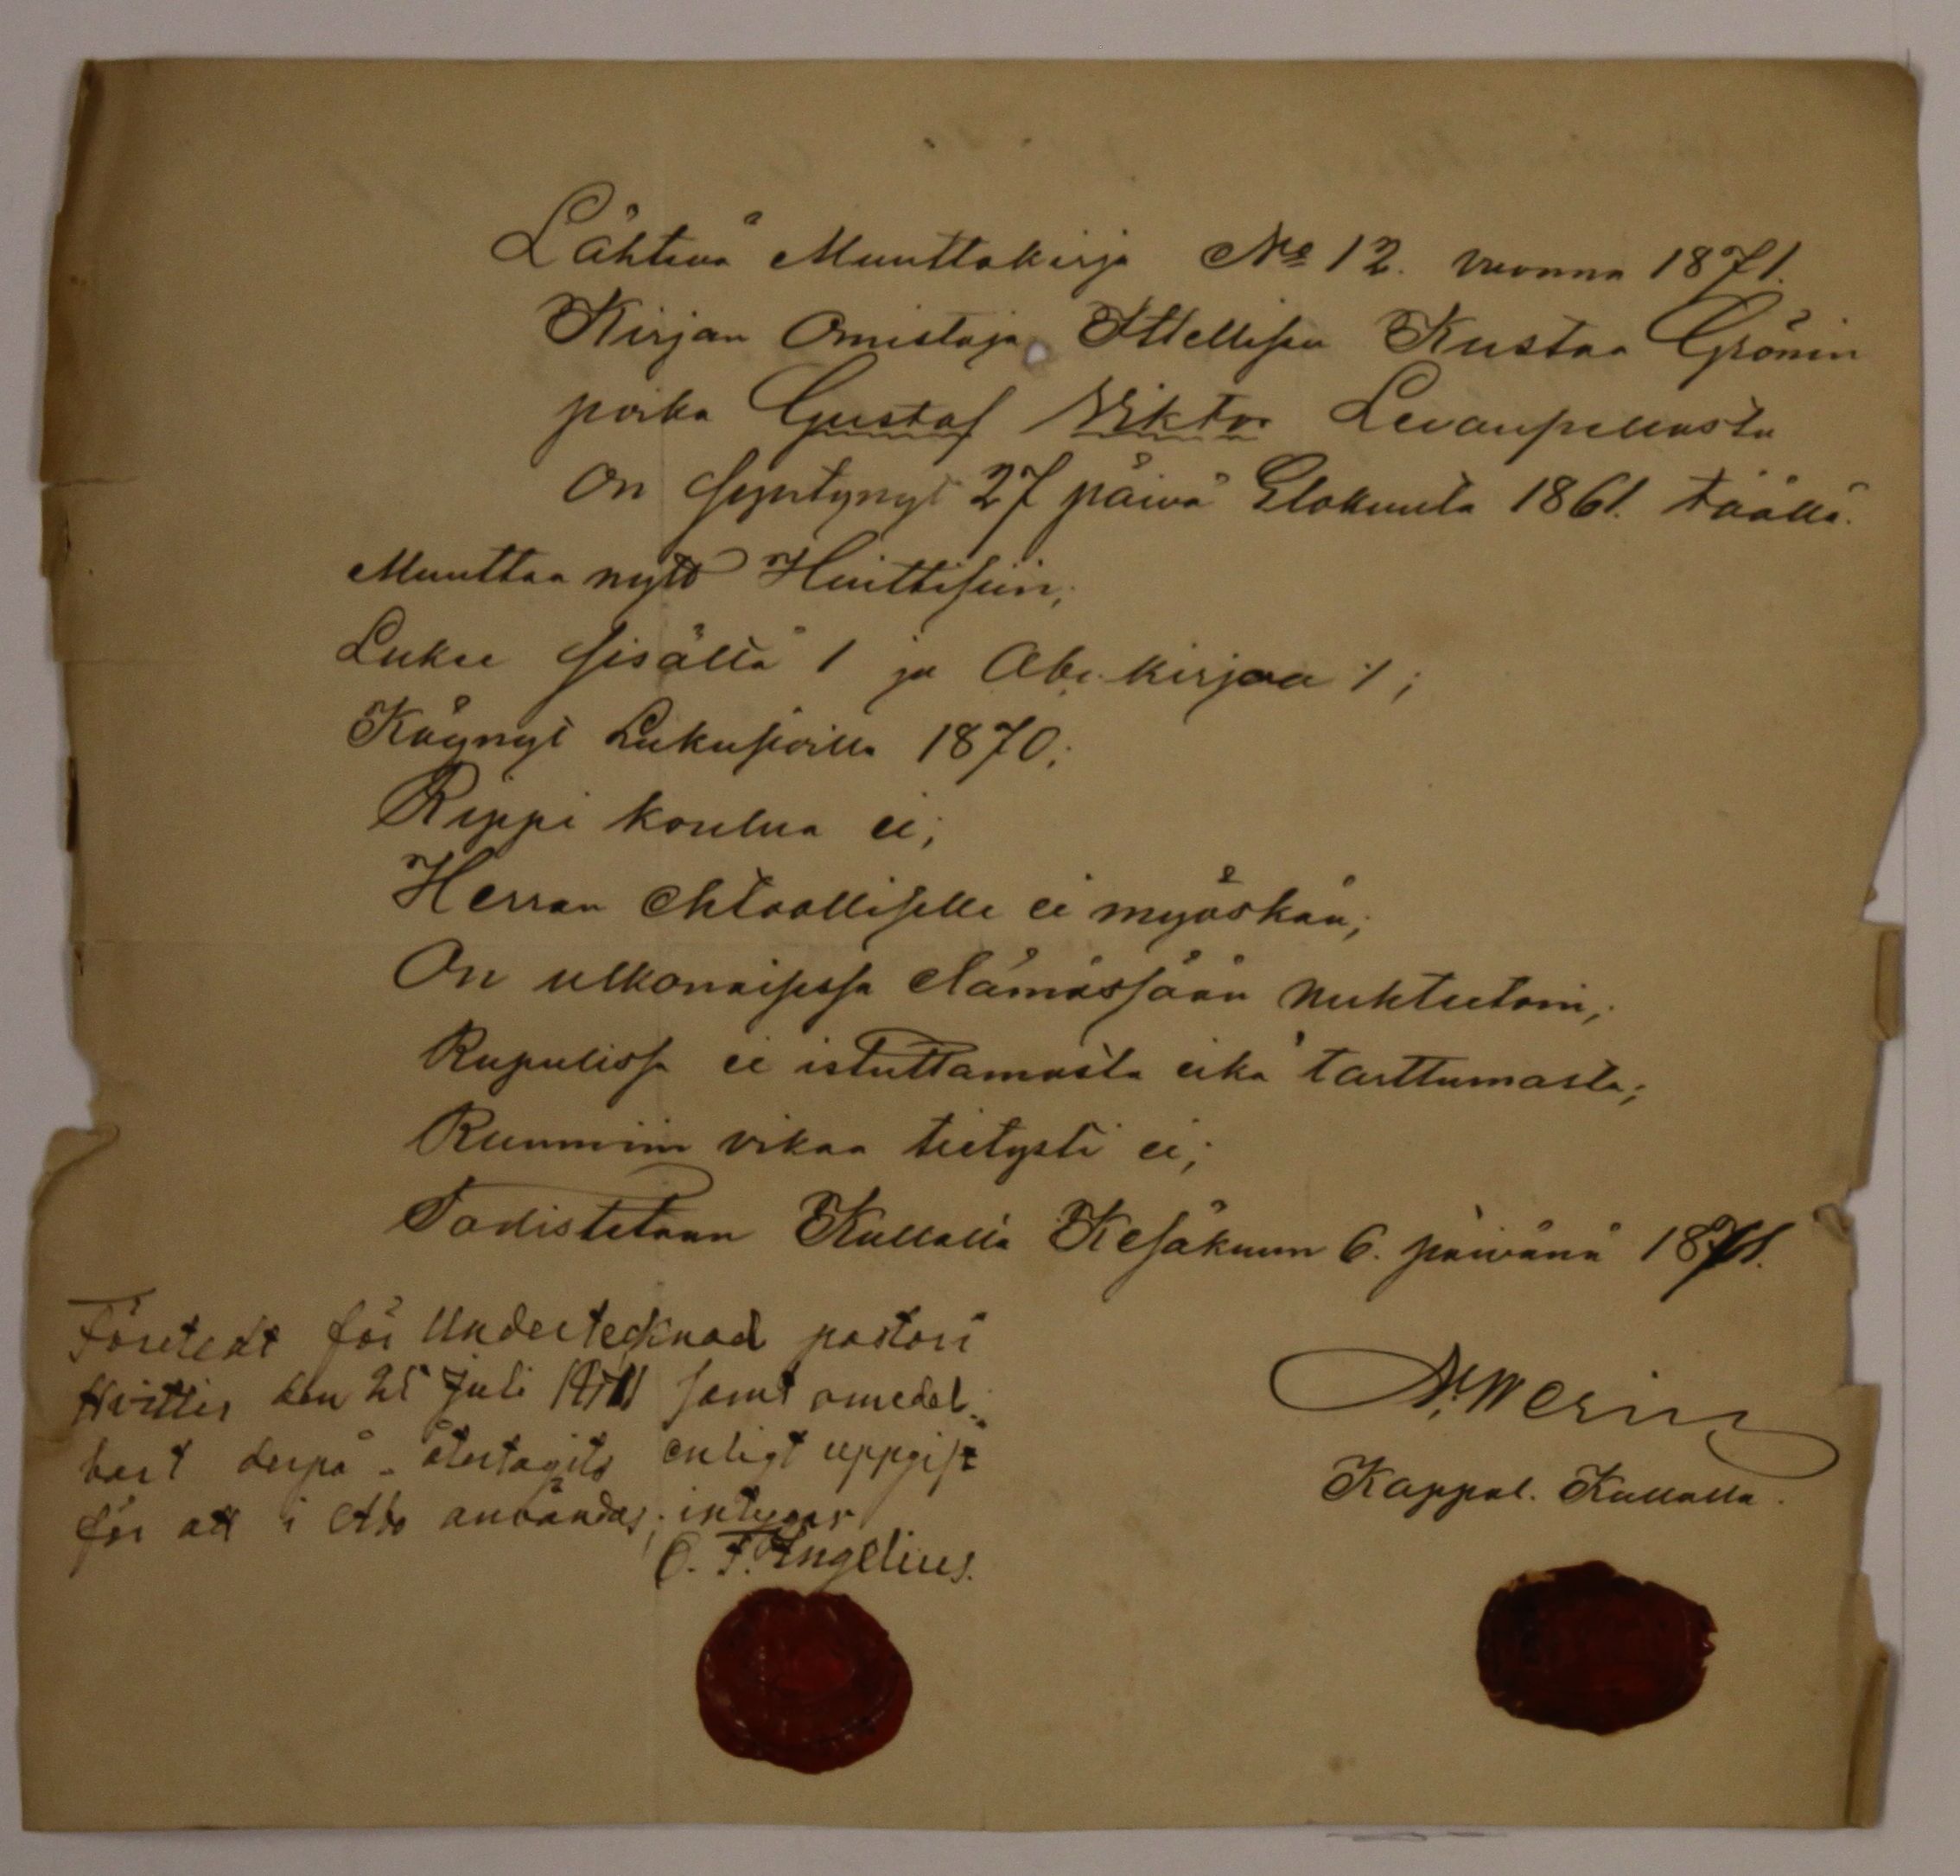 Lähtevä Muuttokirja No 12. vuonna 1871.
Kirjan Omistaja, Itellisen Kustaa Grönin
poika Gustaf Viktor Levanpellosta
On syntynyt 27 päivä Elokuuta 1861. täällä.
Muuttaa nytt Huittisiin;
Lukee sisältä 1 ja Abc. kirjaa 1;
Käynyt Lukusioilla 1870;
Rippi koulua ei;
Herran Ehtoolliselle ei myöskän;
On ulkonaisessa elämässään nuhteetoin;
Rupulissa ei istuttamasta eikä tarttumasta;
Ruumiin vikaa tietysti ei;
Todistetaan Kullalla Kesäkuun 6. päivänä 1871.
Företedt för Undertecknad pastori
Hvittis den 25 Juli 1871 samt omedel-
bart derpå återtagits enligt uppgift
för att i Åbo användas; intygar
C. F. Engelius.
Kappal. Kullalla.